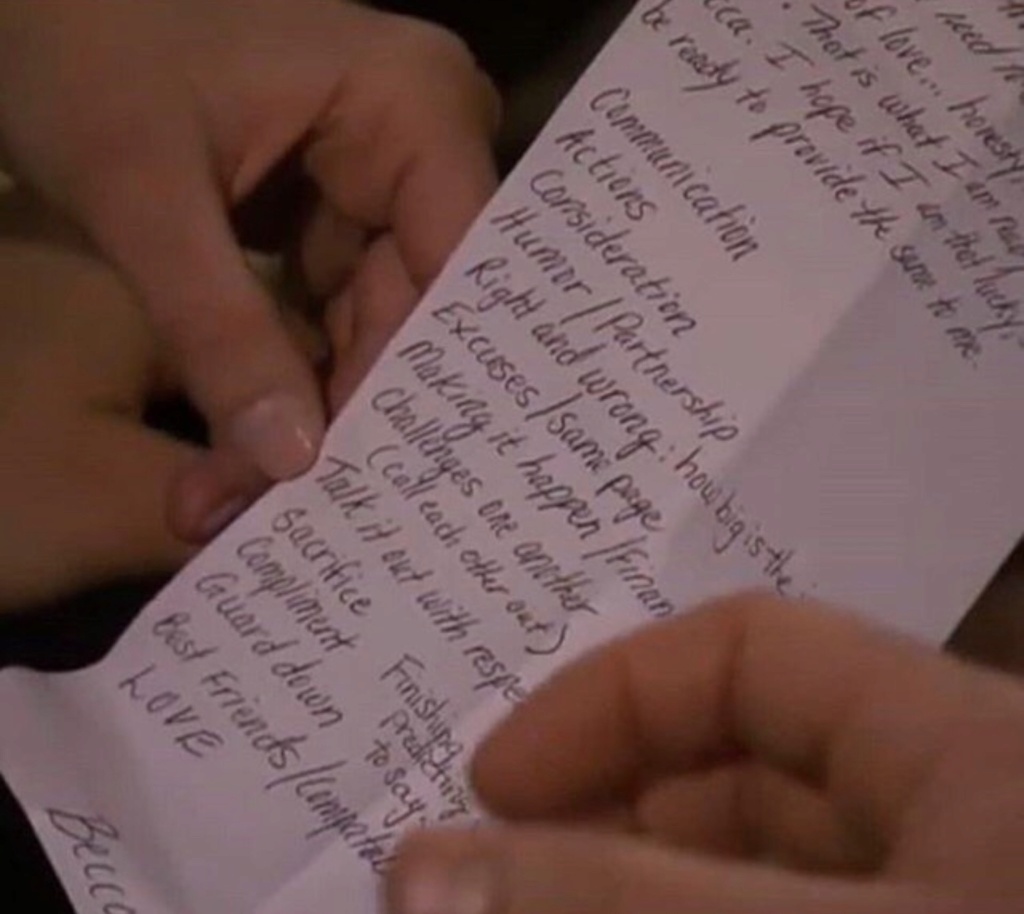 need
of love... honesty
. That is what I am
cca. I hope if I am that lucky,
be ready to provide the same to me.
Communication
Actions
Consideration
Humor / Partnership
Right and wrong: how big is the
Excuses / same page
Making it happen / Finan
Challenges one another
(call each other out)
Talk it out with respe
Sacrifice
Compliment
Guard down
Best Friends / Compatab
LOVE
Finishing
predicting
to say
Becca